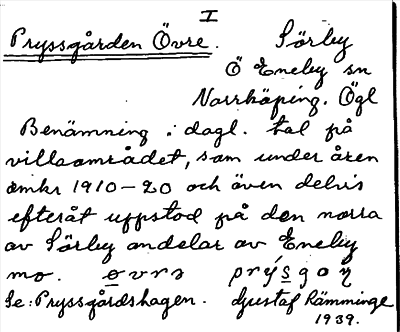 I
Pryssgården Övre. Sörby
Ö Eneby sn
Norrköping. Ögl
Benämning i dagl. tal på
villaområdet, som under åren
omkr 1910-20 och även delvis
efteråt uppstod på den norra
av Sörby andelar av Eneby
mo. ovrə prýsgoɳ
Se: Pryssgårdshagen. Gustaf Rämminge
1939.